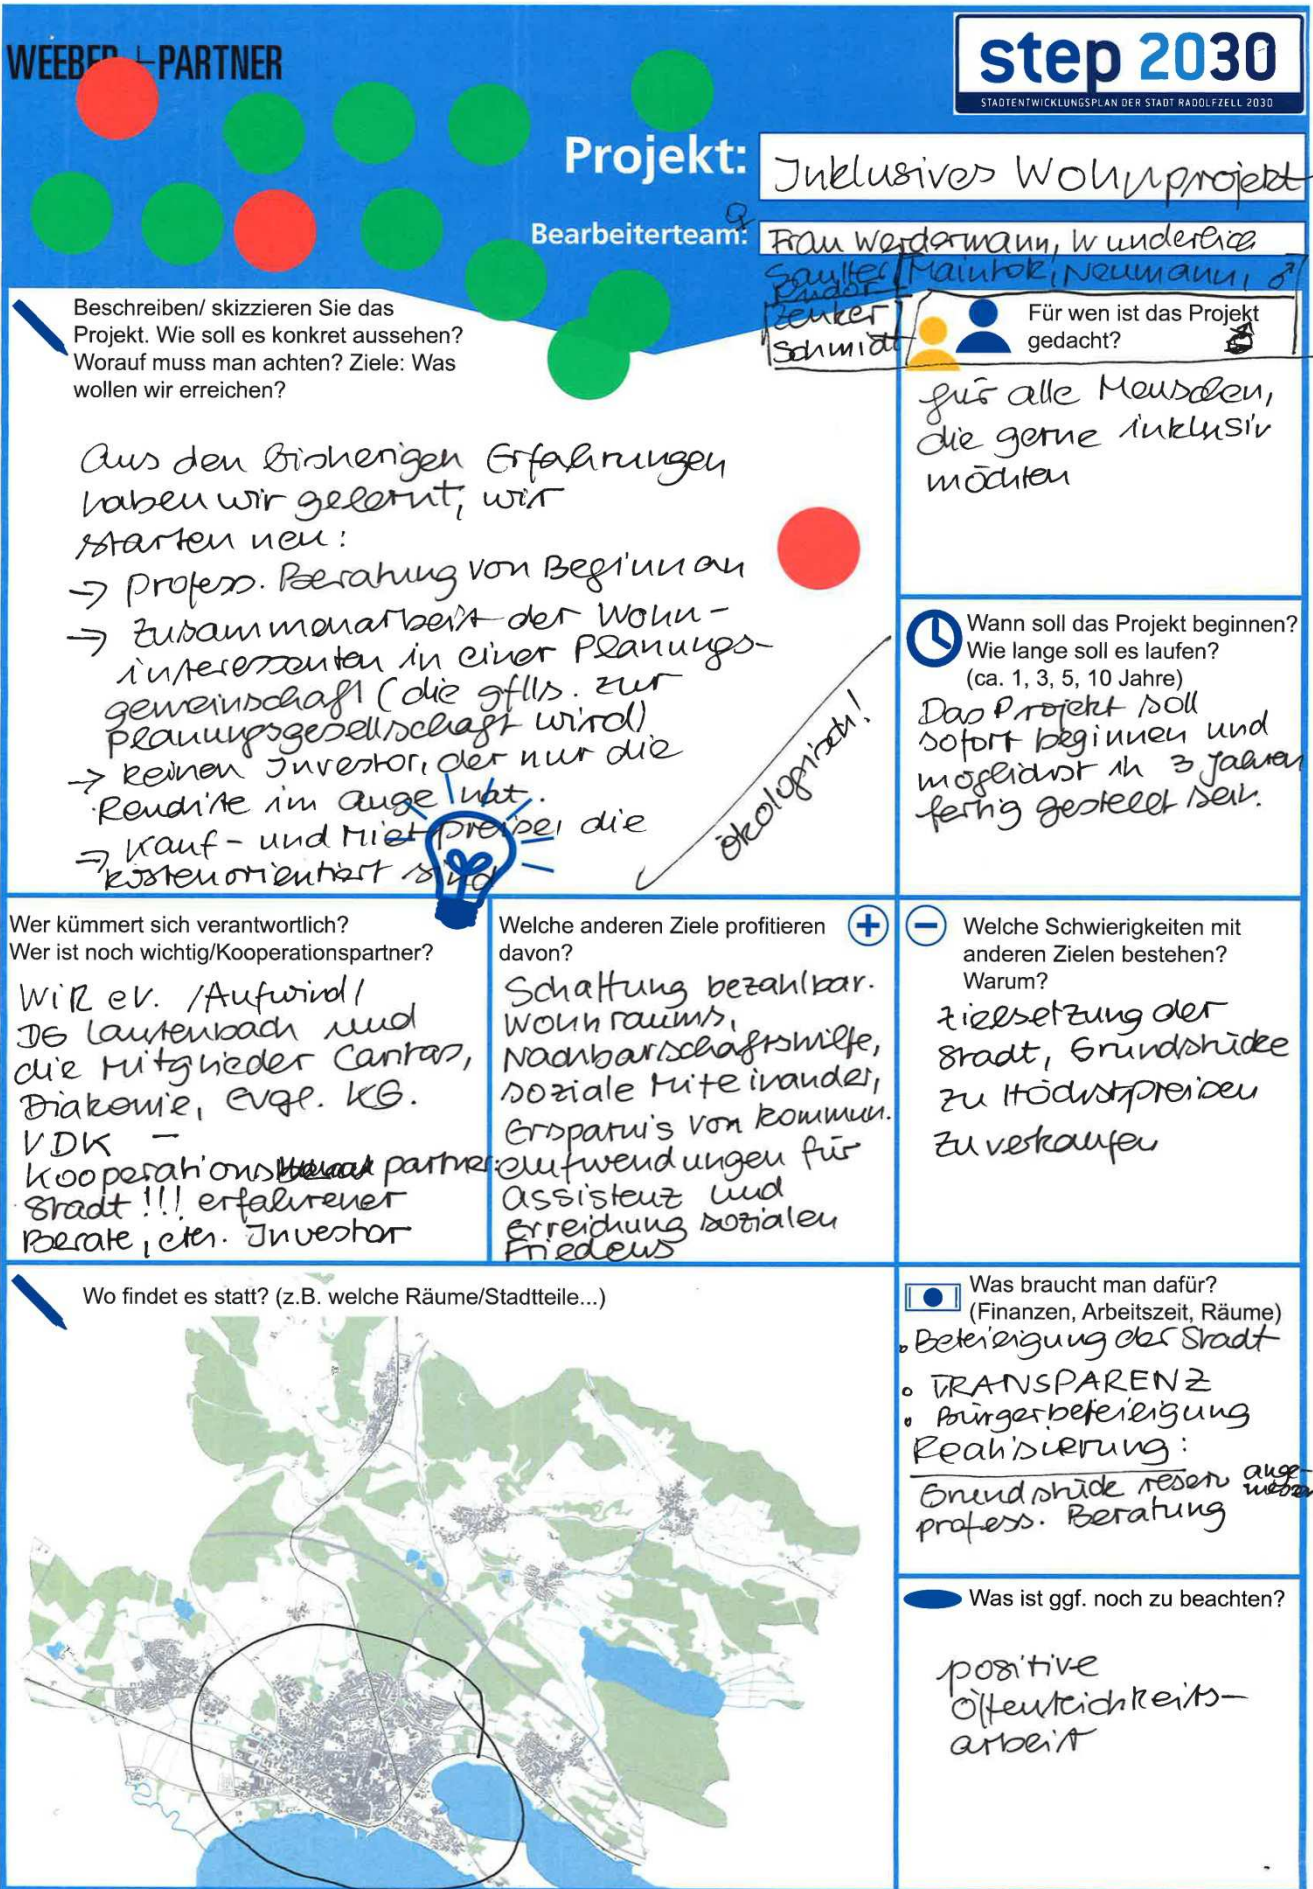 WEEBER+PARTNER
step 2030
STADTENTWICKLUNGSPLAN DER STADT RADOLFZELL 2030
Projekt: Inklusives Wohnprojekt
Bearbeiterteam: ♀ Frau Werdermann, Wunderlich
Mainhok, Neumann, ♂
Zenker
Schmidt
Beschreiben/ skizzieren Sie das
Projekt. Wie soll es konkret aussehen?
Worauf muss man achten? Ziele: Was
wollen wir erreichen?
Aus den bisherigen Erfahrungen
haben wir gelernt, wir
starten neu:
→ Profess. Beratung von Beginn an
→ Zusammenarbeit der Wohn-
interessenten in einer Planungs-
gemeinschaft (die gflls. zur
Planungsgesellschaft wird)
→ keinen Investor, der nur die
Rendite im Auge hat.
→ Kauf- und Mietpreise, die
kostenorientiert sind
ökologisch!
Für wen ist das Projekt
gedacht?
für alle Menschen,
die gerne inklusiv
möchten
Wann soll das Projekt beginnen?
Wie lange soll es laufen?
(ca. 1, 3, 5, 10 Jahre)
Das Projekt soll
sofort beginnen und
möglichst in 3 Jahren
fertig gestellt sein.
Wer kümmert sich verantwortlich?
Wer ist noch wichtig/Kooperationspartner?
WiR eV. /Aufwind/
DG Lautenbach und
die Mitglieder Caritas,
Diakonie, evgl. KG.
VDK –
Kooperations partner:
Stadt !!! erfahrener
Berate, eten. Investor
Welche anderen Ziele profitieren
davon?
Schaffung bezahlbar.
Wohnraums,
Nachbarschaftshilfe,
soziale Miteinander,
Ersparnis von kommun.
Aufwendungen für
Assistenz und
Erreichung sozialen
Friedens
Welche Schwierigkeiten mit
anderen Zielen bestehen?
Warum?
Zielsetzung der
Stadt, Grundstücke
zu Höchstpreisen
zu verkaufen
Wo findet es statt? (z.B. welche Räume/Stadtteile...)
Was braucht man dafür?
(Finanzen, Arbeitszeit, Räume)
• Beteiligung der Stadt
• TRANSPARENZ
• Bürgerbeteiligung
Realisierung:
Grundstücke reserv
profess. Beratung
Was ist ggf. noch zu beachten?
positive
Öffentlichkeits-
arbeit